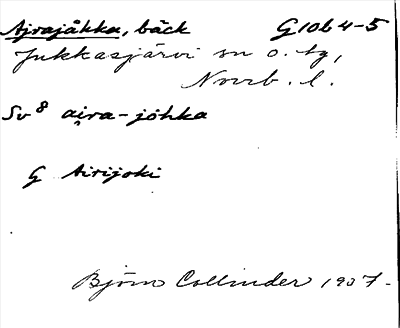 Ajrajåkka, bäck G10b 4-5
Jukkasjärvi sn o. tg,
Norrb. l.
Sv⁸ ai̯ra-jòhka
G Airijoki
Björn Collinder 1957.